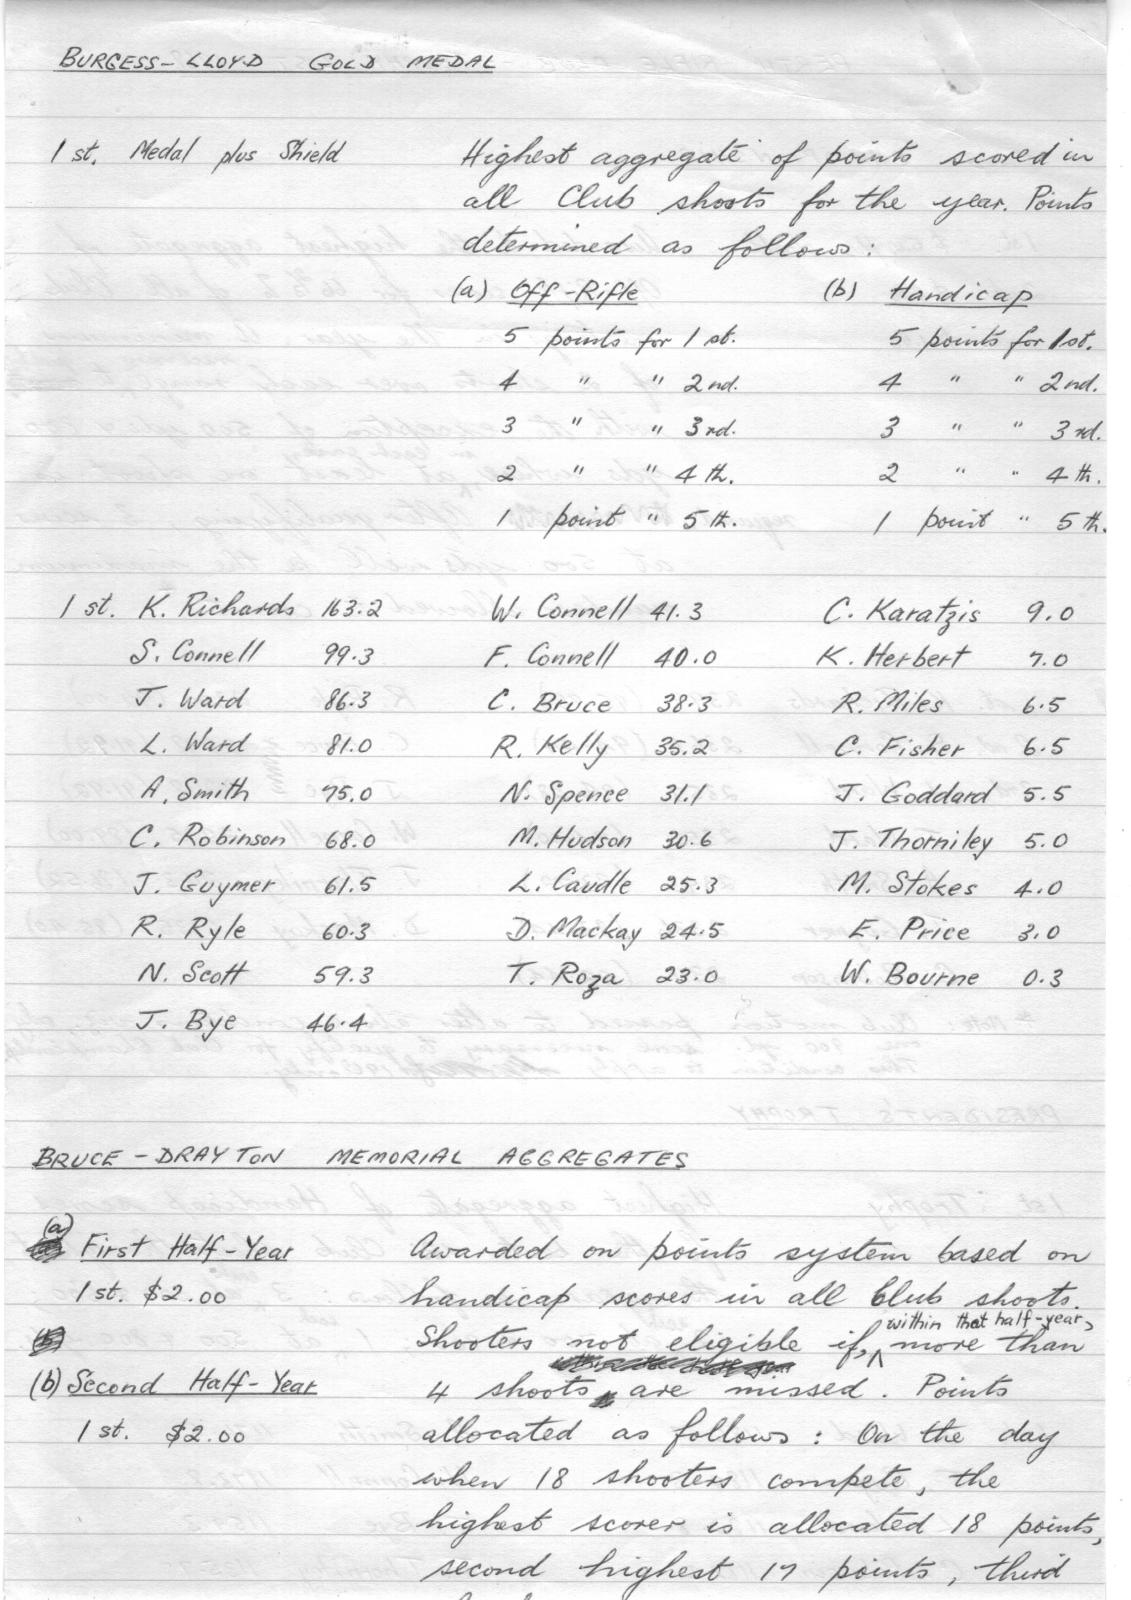 BURGESS-LLOYD GOLD MEDAL
1st. Medal plus Shield
Highest aggregate of points scored in
all Club shoots for the year. Points
determined as follows:
(a) Off-Rifle (b) Handicap
5 points for 1st. 5 points for 1st.
4 " " 2nd. 4 " " 2nd.
3 " " 3rd. 3 " " 3rd.
2 " " 4th. 2 " " 4th.
1 point " 5th. 1 point " 5th.
1st. K. Richards 163.2 W. Connell 41.3 C. Karatzis 9.0
S. Connell 99.3 F. Connell 40.0 K. Herbert 7.0
J. Ward 86.3 C. Bruce 38.3 R. Miles 6.5
L. Ward 81.0 R. Kelly 35.2 C. Fisher 6.5
A. Smith 75.0 N. Spence 31.1 J. Goddard 5.5
C. Robinson 68.0 M. Hudson 30.6 J. Thorniley 5.0
J. Guymer 61.5 L. Caudle 25.3 M. Stokes 4.0
R. Ryle 60.3 D. Mackay 24.5 E. Price 3.0
N. Scott 59.3 T. Roza 23.0 W. Bourne 0.3
J. Bye 46.4
BRUCE-DRAYTON MEMORIAL AGGREGATES
(a) First Half-Year
1st. $2.00
(b) Second Half-Year
1st. $2.00
Awarded on points system based on
handicap scores in all Club shoots.
Shooters not eligible if, within that half-year, more than
4 shoots are missed. Points
allocated as follows: On the day
when 18 shooters compete, the
highest scorer is allocated 18 points,
second highest 17 points, third